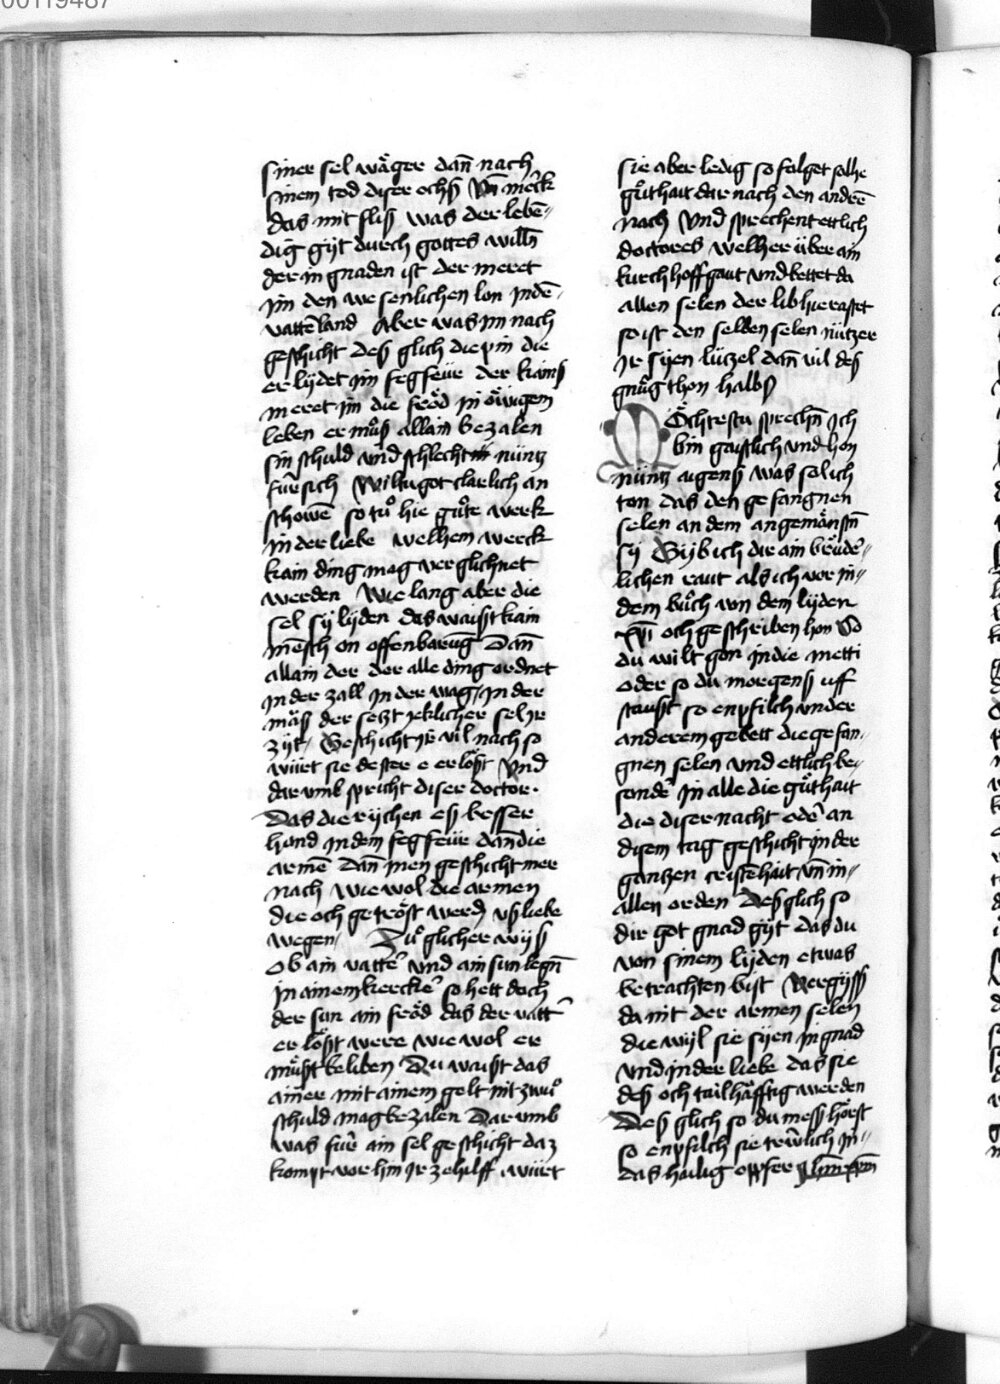 00119487
siner sel wäger dañ nach
sinem tod diser ochß Vñ merck
das mit fliß was der lebē-
dig gijt durch gottes willn̄
der in gnaden ist der meret
jm den wesenlichen lon jn dē
vatterland Aber was jm nach
geschicht deß glich die pin die
er lijdet jm fegfeür der kainß
meret jm die fröd jn öwigem
leben er můß allain bezalen
sin schuld vnd schlecht nüntz
für sich Wiltu got clarlich an
schowē so tů hie gůte werk
jn der liebe welhem werck
kain ding mag verglichnet
werden Wie lang aber die
sel sij lijden das waißt kain
mēsch on offenbarūg Dañ
allain der der alle ding ordnet
jn der zall jn der wag jn der
mäß der setzt jeklicher sel jr
zijt Geschicht jr vil nach so
wiirt sie dester e erlößt Vnd
darumb spricht diser doctor.
Das die rijchen eß besser
hand jn dem fegfeür dañ die
armē Dañ jnen geschicht mer
nach wie wol die armen
die och getröst werdn̄ vß liebe
wegen Zů glicher wijß
ob ain vatter vnd ain sun legn̄
jn ainem kercker so hett doch
der sun ain fröd das der vatter
erlößt were wie wol er
můßt beliben Du waißt das
ainer mit ainem gelt nit zwů
schuld mag bezalen Darumb
was für ain sel geschicht daz
kompt vor hin jr ze hilff wiirt
sie aber ledig so folget solhe
gůthait dar nach den anderē
nach Vnd sprechent ettlich
doctores welher über ain
kirchhoff gaut vnd bettet da
allen selen der lib hie rastet
so ist den selben selen nützer
jr sijen lützel dañ vil deß
gnůg thon halbß
Möchtestu sprechn̄ Ich
bin gaistlich vnd hon
nüntz aigenß was sol ich
ton das den gefangnen
selen an dem angemänstn̄
sij Gijb ich dir ain brüder-
lichen raut als ich vor jn
dem bůch von dem lijden
xp̄i och geschriben hon So
du wilt gon jn die metti
oder so du morgenß uff
staußt so enpfilch vnder
anderem gebett die gefan-
gnen selen vnd ettlich be-
sonder jn alle die gůthait
die diser nacht oder an
disem tag geschicht jn der
gantzen cristēhait vñ jn
allen orden Deß glich so
dir got gnad gijt das du
von sinem lijden etwas
betrachten bist Vergijß
da nit der armen selen
die wijl sie sijen jn gnad
vnd jn der liebe das sie
deß och tailhäfftig werden
Deß glich so du meß hörst
so enpfilch sie trüwlich jn
das hailig opffer